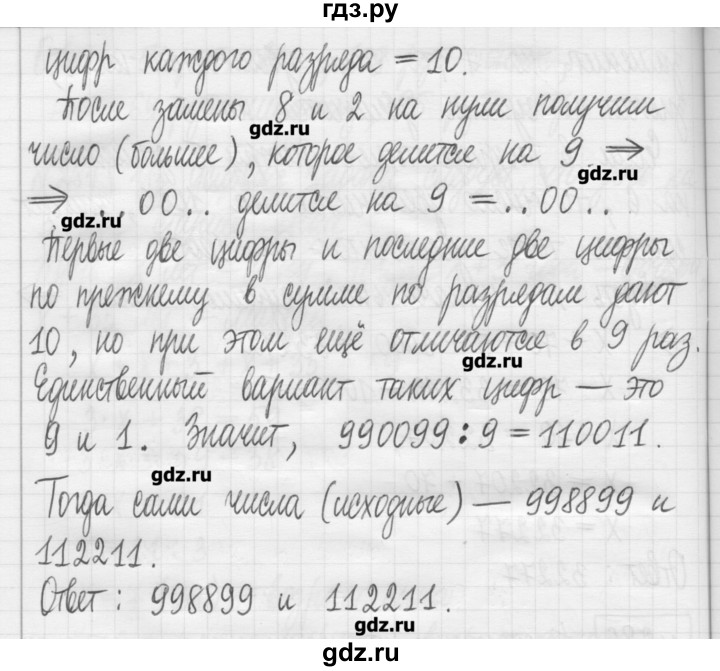 гдз.ру
цифр каждого разряда = 10.
После замены 8 и 2 на нули получим
gdz.ru
число (большее), которое делится на 9 ⇒
gdz.ru
⇒ ..00.. делится на 9 = ..00..
gdz.ru
Первые две цифры и последние две цифры
по прежнему в сумме по разрядам дают
10, но при этом ещё отличаются в 9 раз.
gdz.ru
Единственный вариант таких цифр — это
9 и 1. Значит, 990099 : 9 = 110011.
gdz.ru
Тогда сами числа (исходные) — 998899 и
112211.
gdz.ru
Ответ: 998899 и 112211.
gdz.ru
гдз.ру